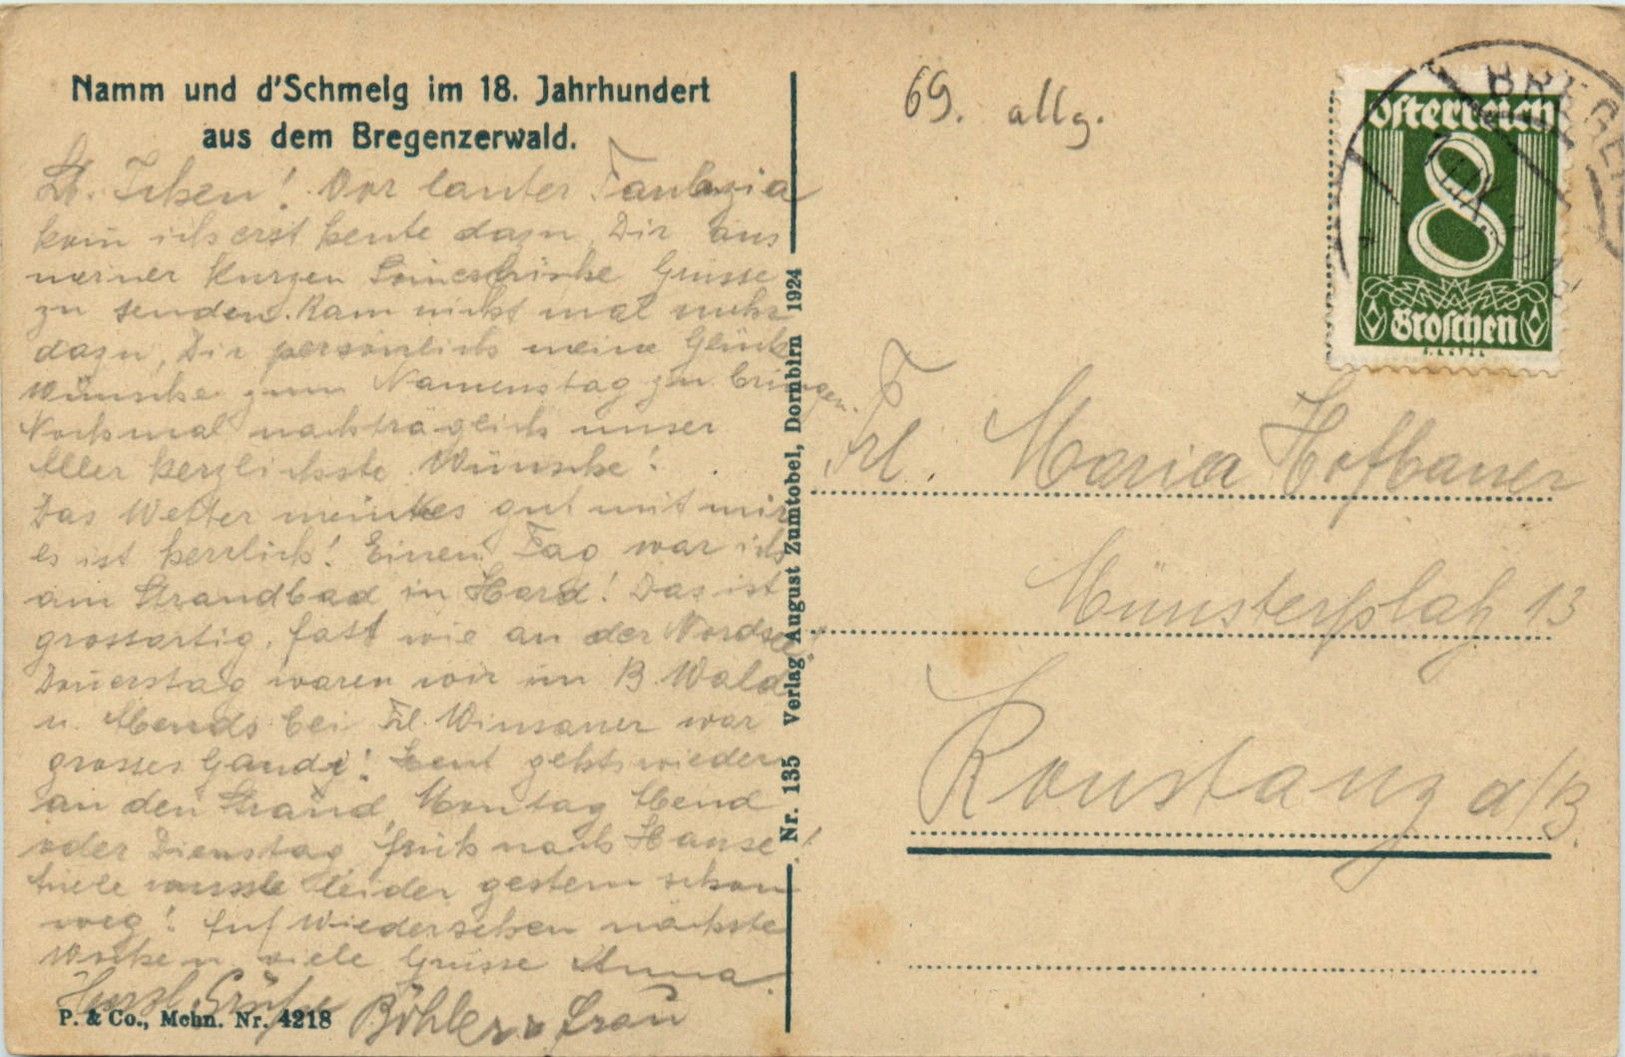 Namm und d'Schmelg im 18. Jahrhundert
aus dem Bregenzerwald.
Lb. Ichen! Vor lauter Fantazia
kom ich erst heute dazu, Dir aus
meiner kurzen Grüsse
zu senden. Kam nicht mal mehr
dazu, Dir persönlich meine Glück
Wünsche zum Namenstag zu bringen.
Nochmal nachträglich unser
Aller herzlichste Wünsche!
Das Wetter meint es gut mit mir
es ist herrlich! Einen Tag war ich
am Strandbad in Hard! Das ist
grossartig, fast wie an der Nordsee!
Donerstag waren wir im B. Wald
u. Abends bei Frl. Winsauer war
grosses Gaudi! Heut gehts wieder
an den Strand, Montag Abend
oder Dienstag früh nach Hause!
musste leider gestern schon
weg! Auf Wiedersehen nächste
Wochen viele Grüsse Anna.
Herzl. Grüße Böhler u Frau
P. & Co., Mchn. Nr. 4218
Nr. 135 Verlag August Zumtobel, Dornbirn 1924
69. allg.
Österreich
8
Groschen
BREGENZ
Frl. Maria Hofbauer
Münsterplatz 13
Konstanz a/B.